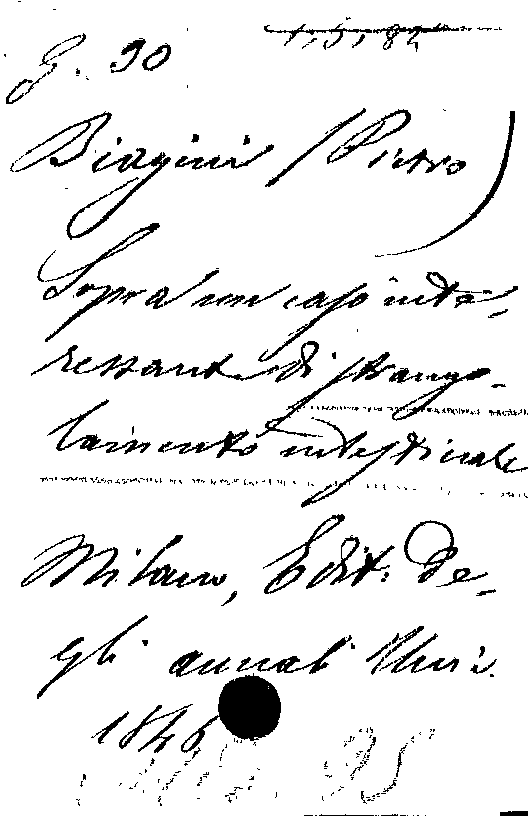 G. 90
Biagini (Pietro)
Sopra un caso inte-
ressante di strango-
lamento intestinale
Milano, Edit. De-
gli annali Univ.
1846
95